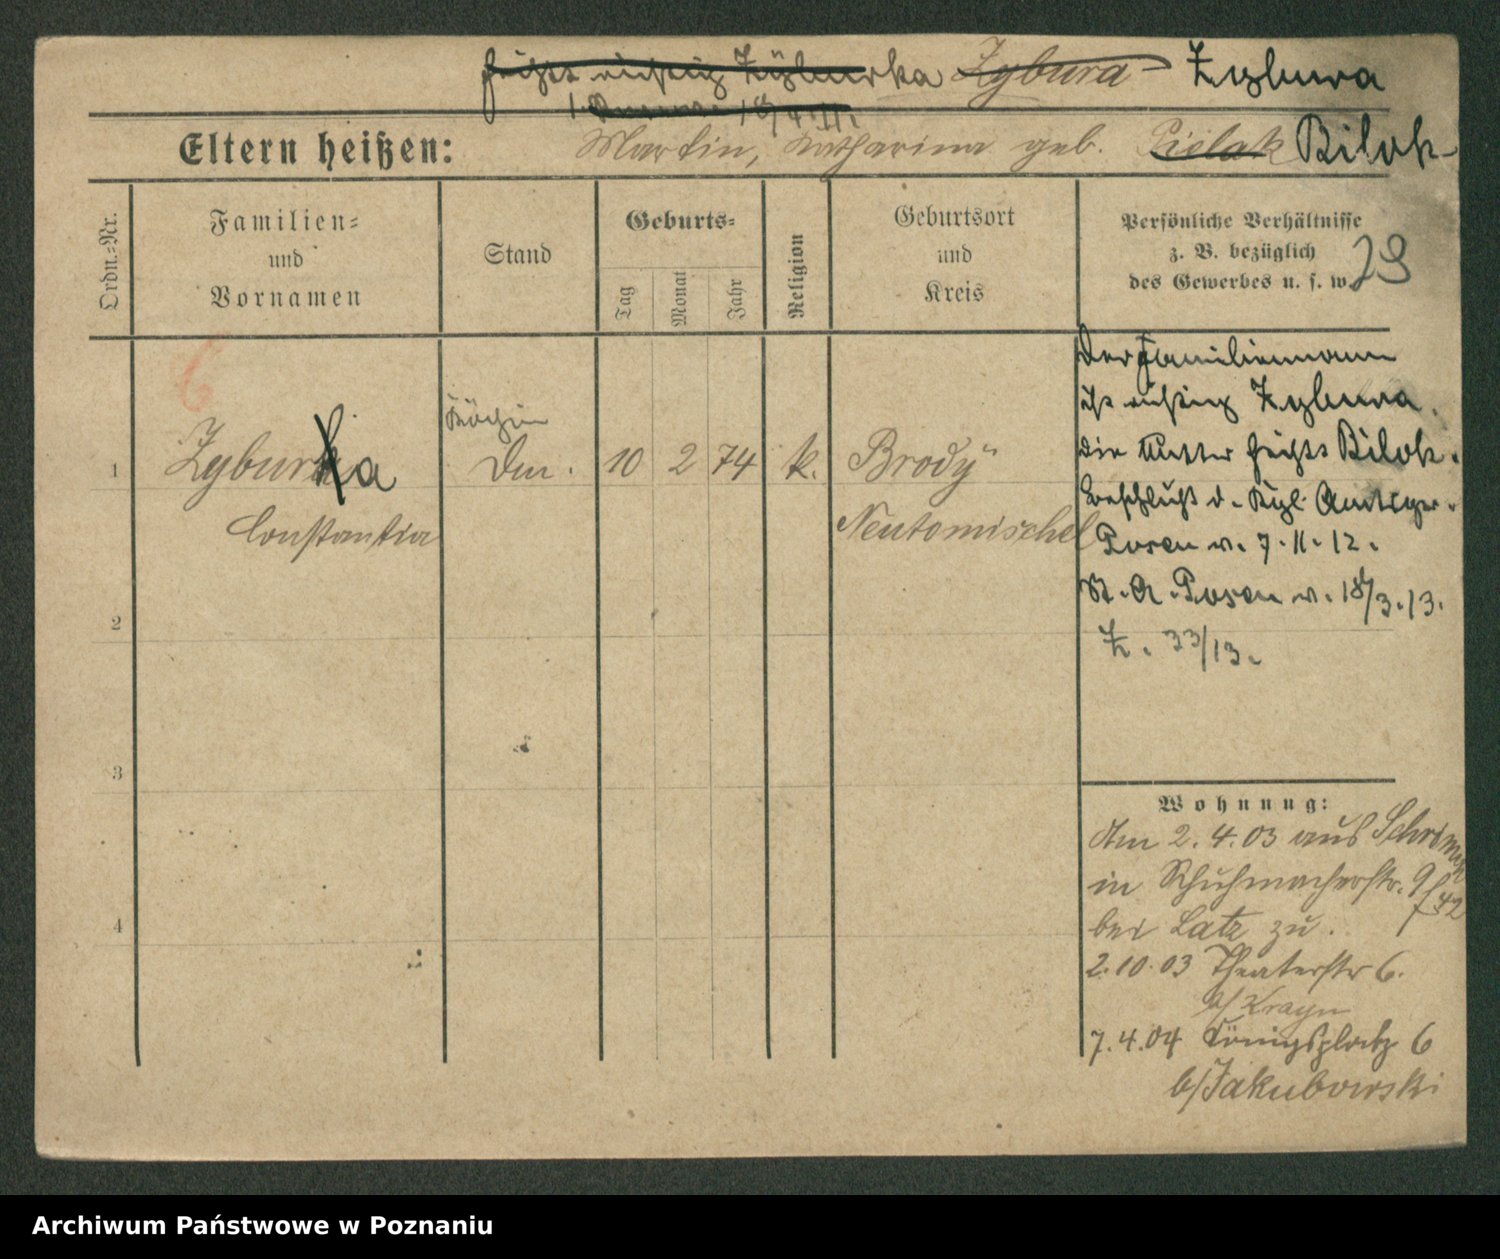 heißt richtig Zyburka Zybura Zybura
18/4.11.
Eltern heißen: Martin, Katharina geb. Pielak Bilok
Ordn.-Nr.
Familien-
und
Vornamen
Stand
Geburts-
Tag
Monat
Jahr
Religion
Geburtsort
und
Kreis
Persönliche Verhältnisse
z. B. bezüglich
des Gewerbes u. s. w.
29
6
Köchin
1 Zyburka Dm. 10 2 74 k. Brody
Constantia Neutomischel
2
3
4
Der Familienname
ist richtig Zybura.
Die Mutter heißt Bilok.
Beschluß d. Kgl. Amtsger.
Posen v. 7.11.12.
St. A. Posen v. 18/3.13.
Z. 33/13.
Wohnung:
Am 2.4.03 aus Schrimm
in Schuhmacherstr. 9
f 42
bei Latz zu.
2.10.03 Theaterstr 6.
b/ Krayn
7.4.04 Königsplatz 6
b/ Jakubowski
Archiwum Państwowe w Poznaniu